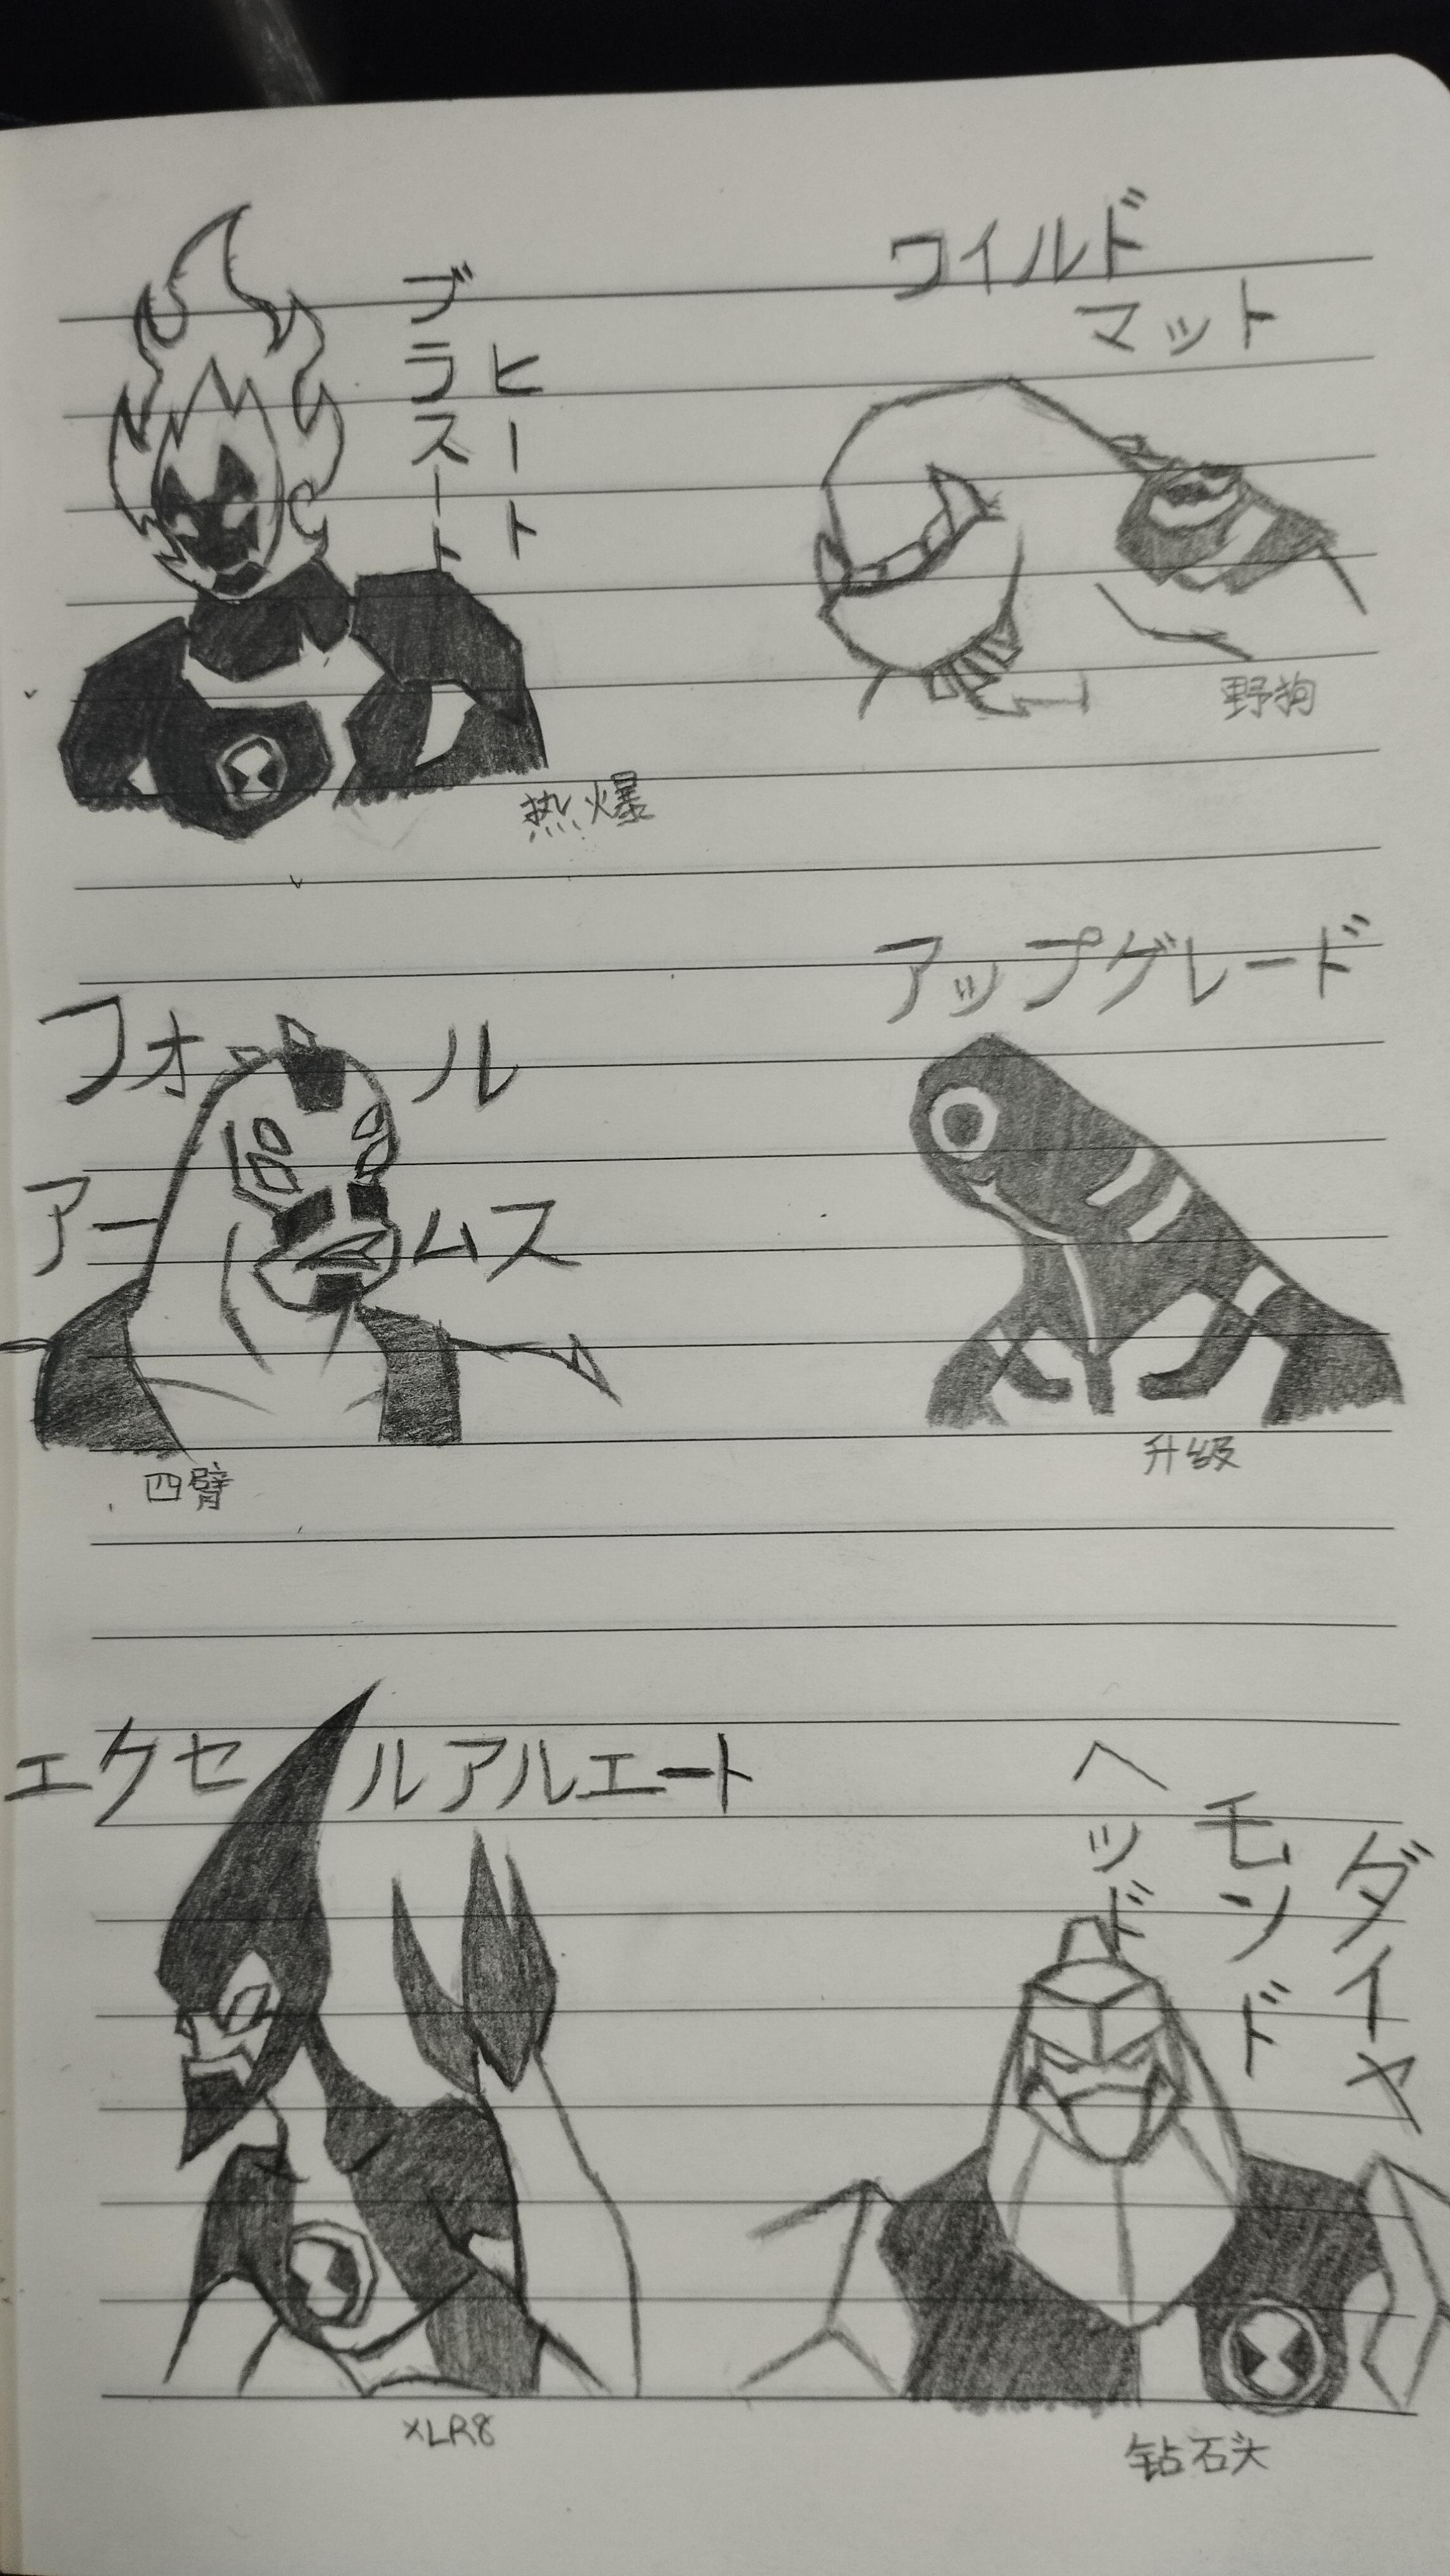 ヒート
ブラスート
熱爆
ワイルド
マット
野狗
フォール
アームス
四臂
アップグレード
升级
エクセルアルエート
XLR8
ダイヤ
モンド
ヘッド
钻石头